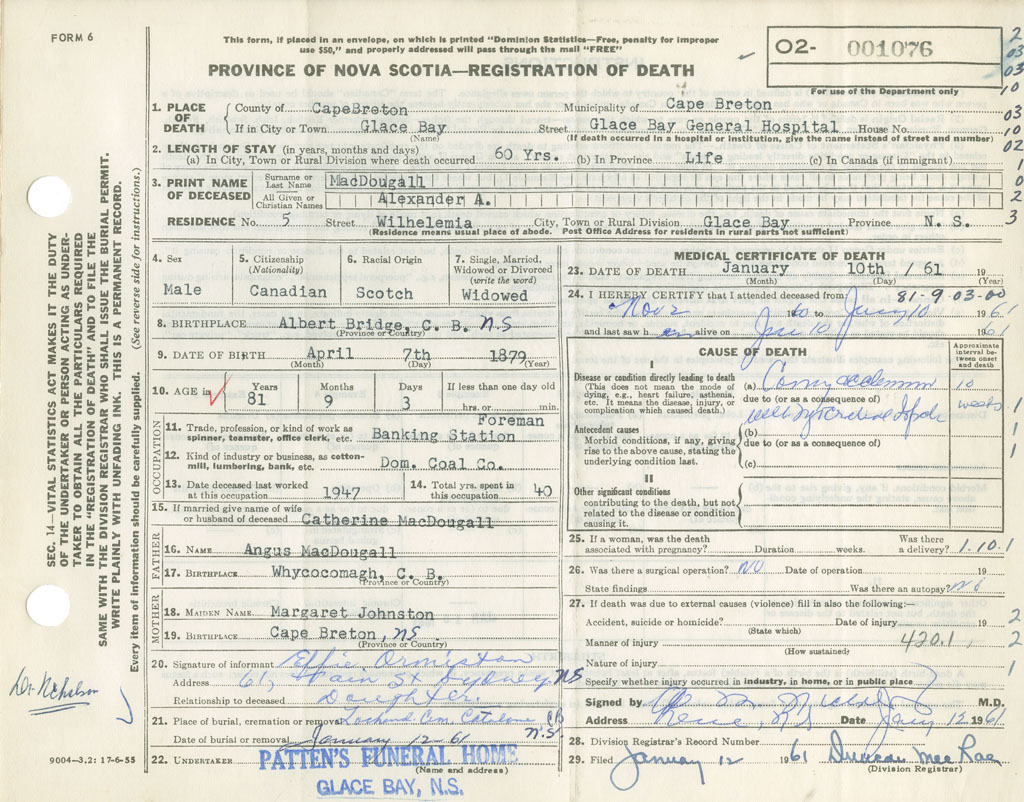 FORM 6
This form, if placed in an envelope, on which is printed "Dominion Statistics—Free, penalty for improper
use $50," and properly addressed will pass through the mail "FREE"
PROVINCE OF NOVA SCOTIA—REGISTRATION OF DEATH
02- 001076
For use of the Department only
2
03
03
10
03
10
02
1
0
2
3
SEC. 14—VITAL STATISTICS ACT MAKES IT THE DUTY
OF THE UNDERTAKER OR PERSON ACTING AS UNDER-
TAKER TO OBTAIN ALL THE PARTICULARS REQUIRED
IN THE "REGISTRATION OF DEATH" AND TO FILE THE
SAME WITH THE DIVISION REGISTRAR WHO SHALL ISSUE THE BURIAL PERMIT.
WRITE PLAINLY WITH UNFADING INK. THIS IS A PERMANENT RECORD.
Every item of information should be carefully supplied. (See reverse side for instructions.)
1. PLACE OF DEATH County of CapeBreton Municipality of Cape Breton
If in City or Town Glace Bay Street Glace Bay General Hospital House No.
(Name) (If death occurred in a hospital or institution, give the name instead of street and number)
2. LENGTH OF STAY (in years, months and days)
(a) In City, Town or Rural Division where death occurred 60 Yrs. (b) In Province Life (c) In Canada (if immigrant)
3. PRINT NAME OF DECEASED Surname or Last Name MacDougall
All Given or Christian Names Alexander A.
RESIDENCE No. 5 Street Wilhelemia City, Town or Rural Division Glace Bay Province N. S.
(Residence means usual place of abode. Post Office Address for residents in rural parts not sufficient)
4. Sex Male
5. Citizenship (Nationality) Canadian
6. Racial Origin Scotch
7. Single, Married, Widowed or Divorced (write the word) Widowed
8. BIRTHPLACE Albert Bridge, C. B. N.S
(Province or Country)
9. DATE OF BIRTH April 7th 1879
(Month) (Day) (Year)
10. AGE in Years 81 Months 9 Days 3 If less than one day old hrs. or min.
OCCUPATION
11. Trade, profession, or kind of work as spinner, teamster, office clerk, etc. Foreman Banking Station
12. Kind of industry or business, as cotton-mill, lumbering, bank, etc. Dom. Coal Co.
13. Date deceased last worked at this occupation 1947 14. Total yrs. spent in this occupation 40
15. If married give name of wife or husband of deceased Catherine MacDougall
FATHER
16. NAME Angus MacDougall
17. BIRTHPLACE Whycocomagh, C. B.
(Province or Country)
MOTHER
18. MAIDEN NAME Margaret Johnston
19. BIRTHPLACE Cape Breton, NS
(Province or Country)
20. Signature of informant Effie Ormiston
Address 61, Main St Sydney NS
Relationship to deceased Daughter
21. Place of burial, cremation or removal Cem Catalone CB
Date of burial or removal January 12 61 N.S.
22. UNDERTAKER PATTEN'S FUNERAL HOME
(Name and address)
GLACE BAY, N.S.
Dr Nicholson
9004—3.2: 17-6-55
MEDICAL CERTIFICATE OF DEATH
23. DATE OF DEATH January 10th / 61 19
(Month) (Day) (Year)
24. I HEREBY CERTIFY that I attended deceased from 81-9 03-00
Nov 2 1960 to Jany 10 1961
and last saw h im alive on Jan 10 1961
CAUSE OF DEATH
Approximate interval between onset and death
I
Disease or condition directly leading to death (a) Coronary 10
(This does not mean the mode of dying, e.g., heart failure, asthenia, etc. It means the disease, injury, or complication which caused death.)
due to (or as a consequence of) weeks
with Myocardial
Antecedent causes (b)
Morbid conditions, if any, giving rise to the above cause, stating the underlying condition last.
due to (or as a consequence of)
(c)
1
1
1
II
Other significant conditions
contributing to the death, but not related to the disease or condition causing it.
25. If a woman, was the death associated with pregnancy? Duration weeks. Was there a delivery? 1.10.1
26. Was there a surgical operation? NO Date of operation 19
State findings Was there an autopsy? No
27. If death was due to external causes (violence) fill in also the following:—
Accident, suicide or homicide? Date of injury 19 2
(State which)
Manner of injury 420.1, 2
(How sustained)
Nature of injury 1
Specify whether injury occurred in industry, in home, or in public place
Signed by M.D.
Address N.S Date Jany 12 1961
28. Division Registrar's Record Number
29. Filed January 12 1961 Duncan MacRae
(Division Registrar)